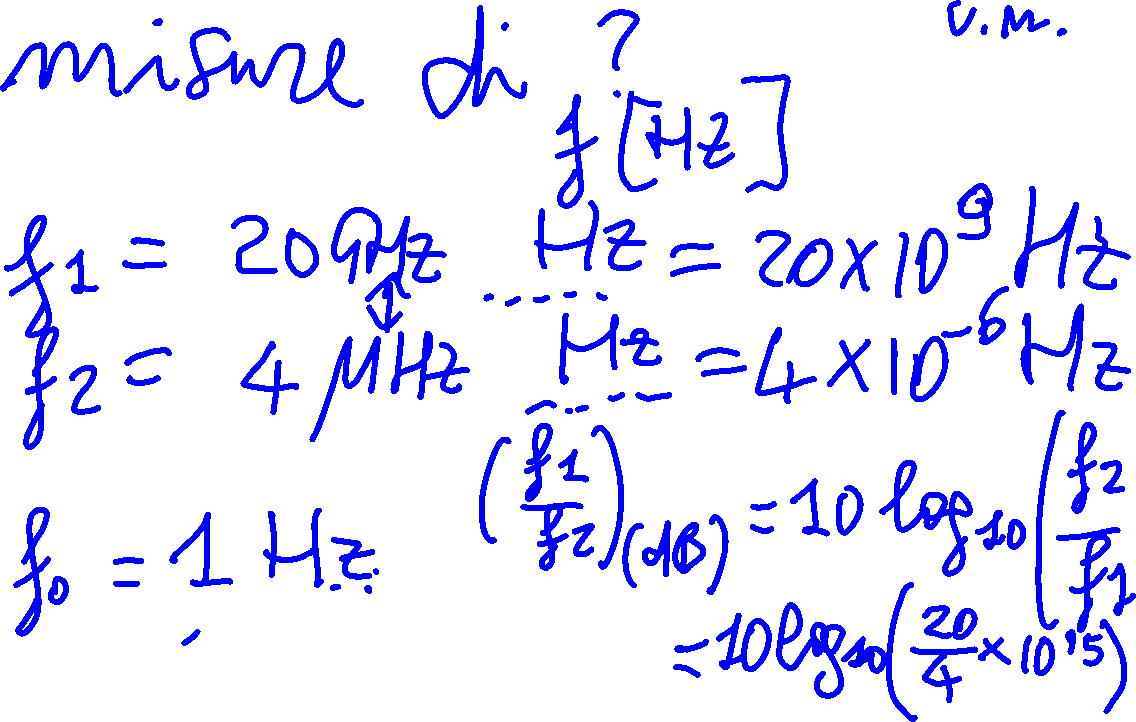 misure di ? u.m.
f [Hz]
f1 = 20 GHz Hz = 20×10^9 Hz
f2 = 4 μHz Hz = 4×10^-6 Hz
(f1/f2)(dB) = 10 log10 (f2/f1
f0 = 1 Hz
= 10 log10 (20/4 × 10^15)